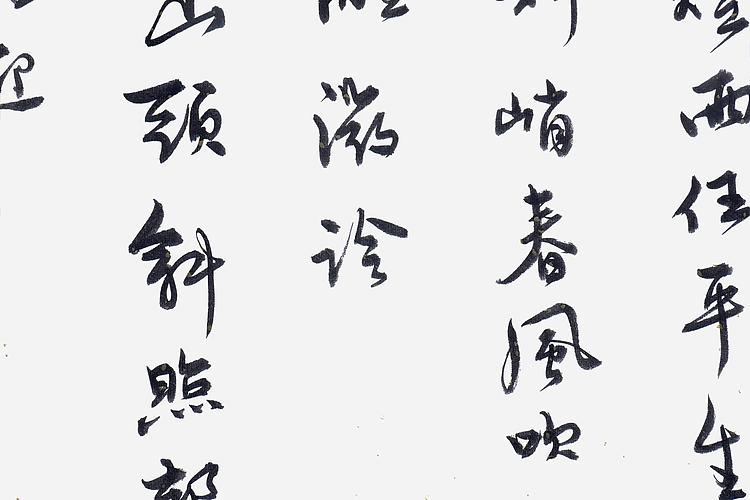 雨任平生
料峭春風吹
醒微冷
山頭斜照却
迎